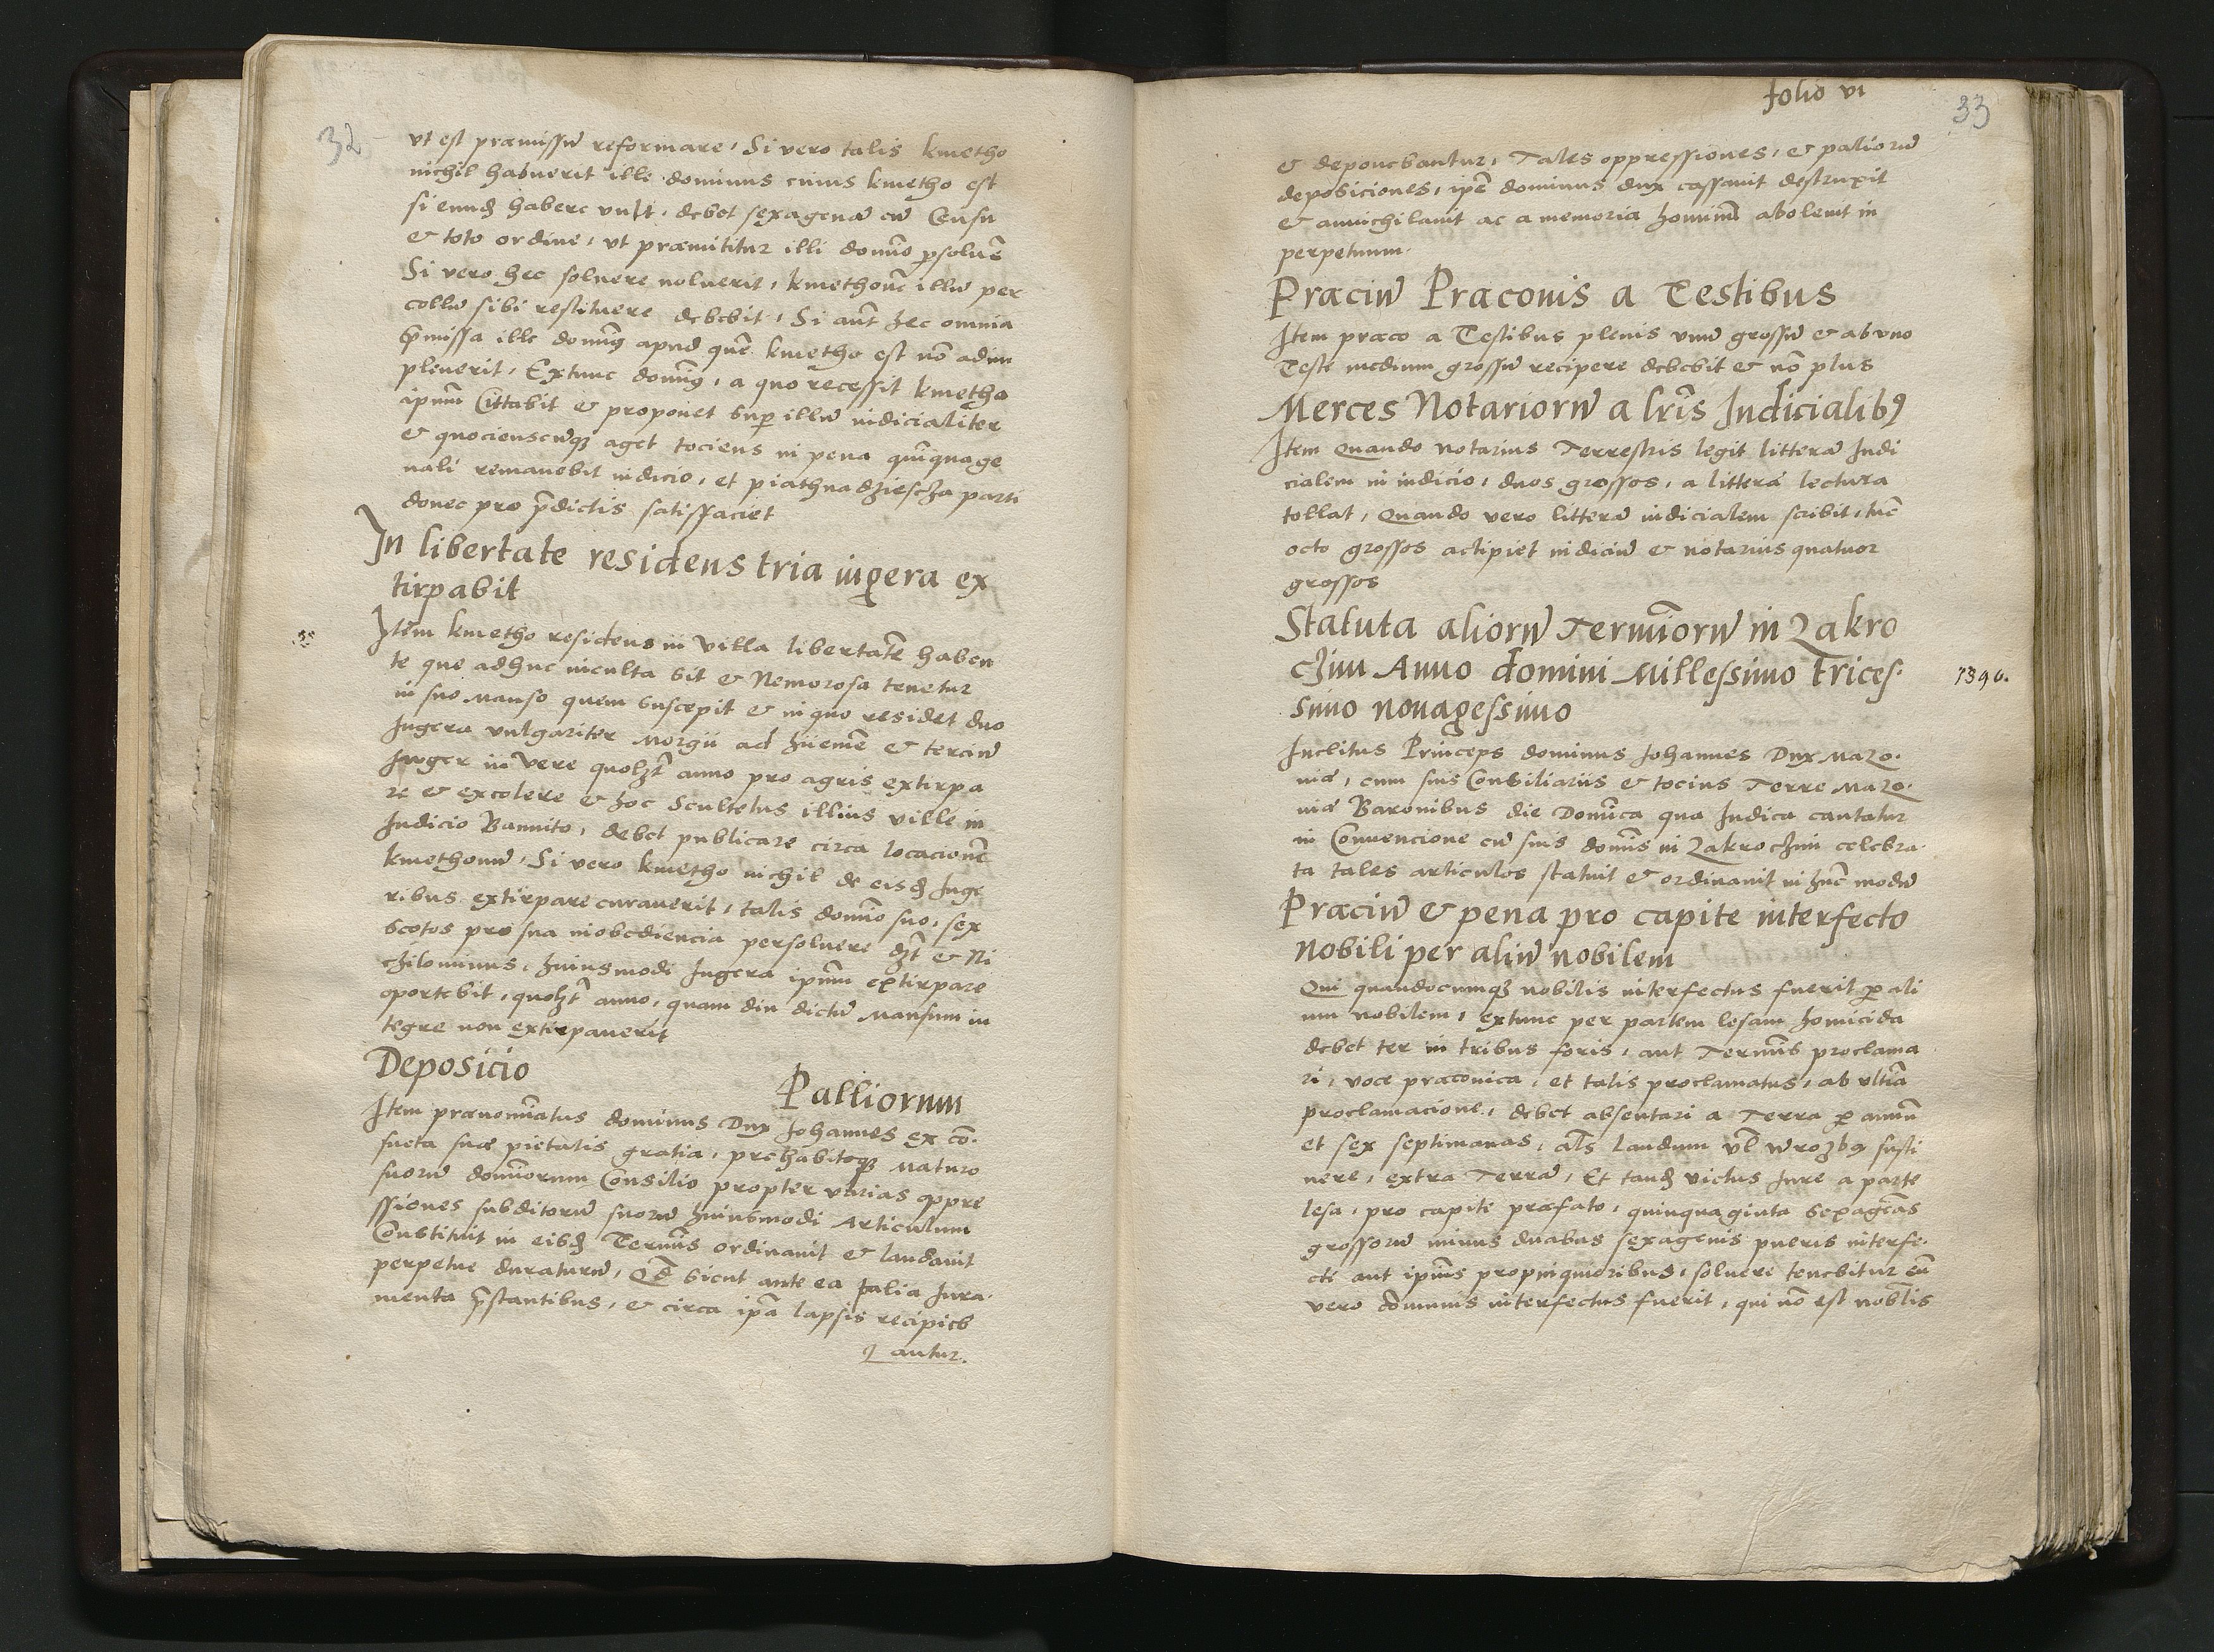 32
vt est præmissū reformare, Si vero talis kmetho
nichil habuerit ille dominus cuius kmetho est
si eundē habere vult, debet sexagenā cū Censu
& toto ordine, vt præmititur illi domīo psoluē
Si vero hec soluere noluerit, kmethonē illū per
collū sibi restituere debebit, Si aūt hec omnia
p̄missa ille domīꝰ apud quē kmetho est nō adim
pleuerit, Extunc domīꝰ, a quo recessit kmetho
ipnm̄ Cittabit & proponet sup̱ illū iudicialiter
& quocienscūqꝫ aget tociens in pena quīquage
nali remanebit iudicio, et piathnadziescza parti
donec pro p̄dictis satisfaciet
In libertate residens tria iugera ex
tirpabit
Itēm kmetho residens in villa libertatē haben
te que adhuc inculta sit & Nemorosa tenetur
in suo Manso quem suscepit & in quo residet duo
Iugera vulgariter Morgii ad hiemē & terciū
Iuger in vere quolꝫt anno pro agris extirpa
re & excolere & hoc Scultetus illius ville in
Iudicio Bannito, debet publicare circa locacionē
kmethonū, Si vero kmetho nichil de eisdē Iuge
ribus extirpare curauerit, talis domīo suo, sex
scotos pro sua inobediencia persoluere dꝫt & Ni
chilominus, huiusmodi Iugera ipnm̄ extirpare
oportebit, quolꝫt anno, quam diu dictū Mansum in
tegre non extirpauerit
Deposicio
Palliorum
Item prænomīatus dominus Dux Iohannes ex cō.
sueta suæ pietatis gratia, prehabitoqꝫ Maturo
suorū domīorum Consilio propter varias oppre
ssiones subditorū suorū huiusmodi Articulum
Constituit in eisdē Termīs ordinauit & laudauit
perpetue duraturū, Qđ sicut ante ea palia Iura.
menta p̄stantibus, & circa ipā lapsis recipieb
antur.
folio vi
33
& deponebantur, Tales oppressiones, & paliorū
deposiciones, ipē dominus dux cassauit destruxit
& annichilauit ac a memoria hominū aboleuit in
perpetuum.
Præciū Præconis a Testibus
Item præco a Testibus plenis vnū grossū & ab vno
Teste medium grossū recipere debebit & nō plus
Merces Notariorū a lrīs Iudicialibꝰ
Item Quando notarius Terrestris legit litterā Iudi
cialem in iudicio, duos grossos, a litterā lectura
tollat, Quando vero litterā iudicialem scribit, tūc
octo grossos actipiet iudiciū & notarius quatuor
grossos
Statuta aliorū Termīorū in Zakro
czim Anno domini Millessimo trices.
simo nonagessimo
1390.
Inclitus Princeps dominus Iohannes Dux Mazo.
uiæ, cum suis Consiliariis & tocius Terre Mazo.
uiæ Baronibus die Domīca qua Iudica cantatur
in Conuencione cū suis domīs in Zakroczim celebra.
ta tales articulos statuit & ordinauit in hūc modū
Præciū & pena pro capite interfecto
nobili per aliū nobilem
Qui quandocumqꝫ nobilis interfectus fuerit p̱ ali
um nobilem, extunc per partem lesam homicida
debet ter in tribus foris, aut Termīs proclama
ri, voce præconica, et talis proclamatus, ab vltīa
proclamacione, debet absentari a Terra p̱ annū
et sex septimanas, als̄ Laudum vl̄ wrozbꝰ susti
nere, extra Terrā, Et tandē victus Iure a parte
lesa, pro capite præfato, quinquaginta sexagēas
grossorū minus duabus sexagenis pueris interfe.
cti aut ipīus propinquioribus, soluere tenebitur cū
vero dominus interfectus fuerit, qui nō est nobīlis